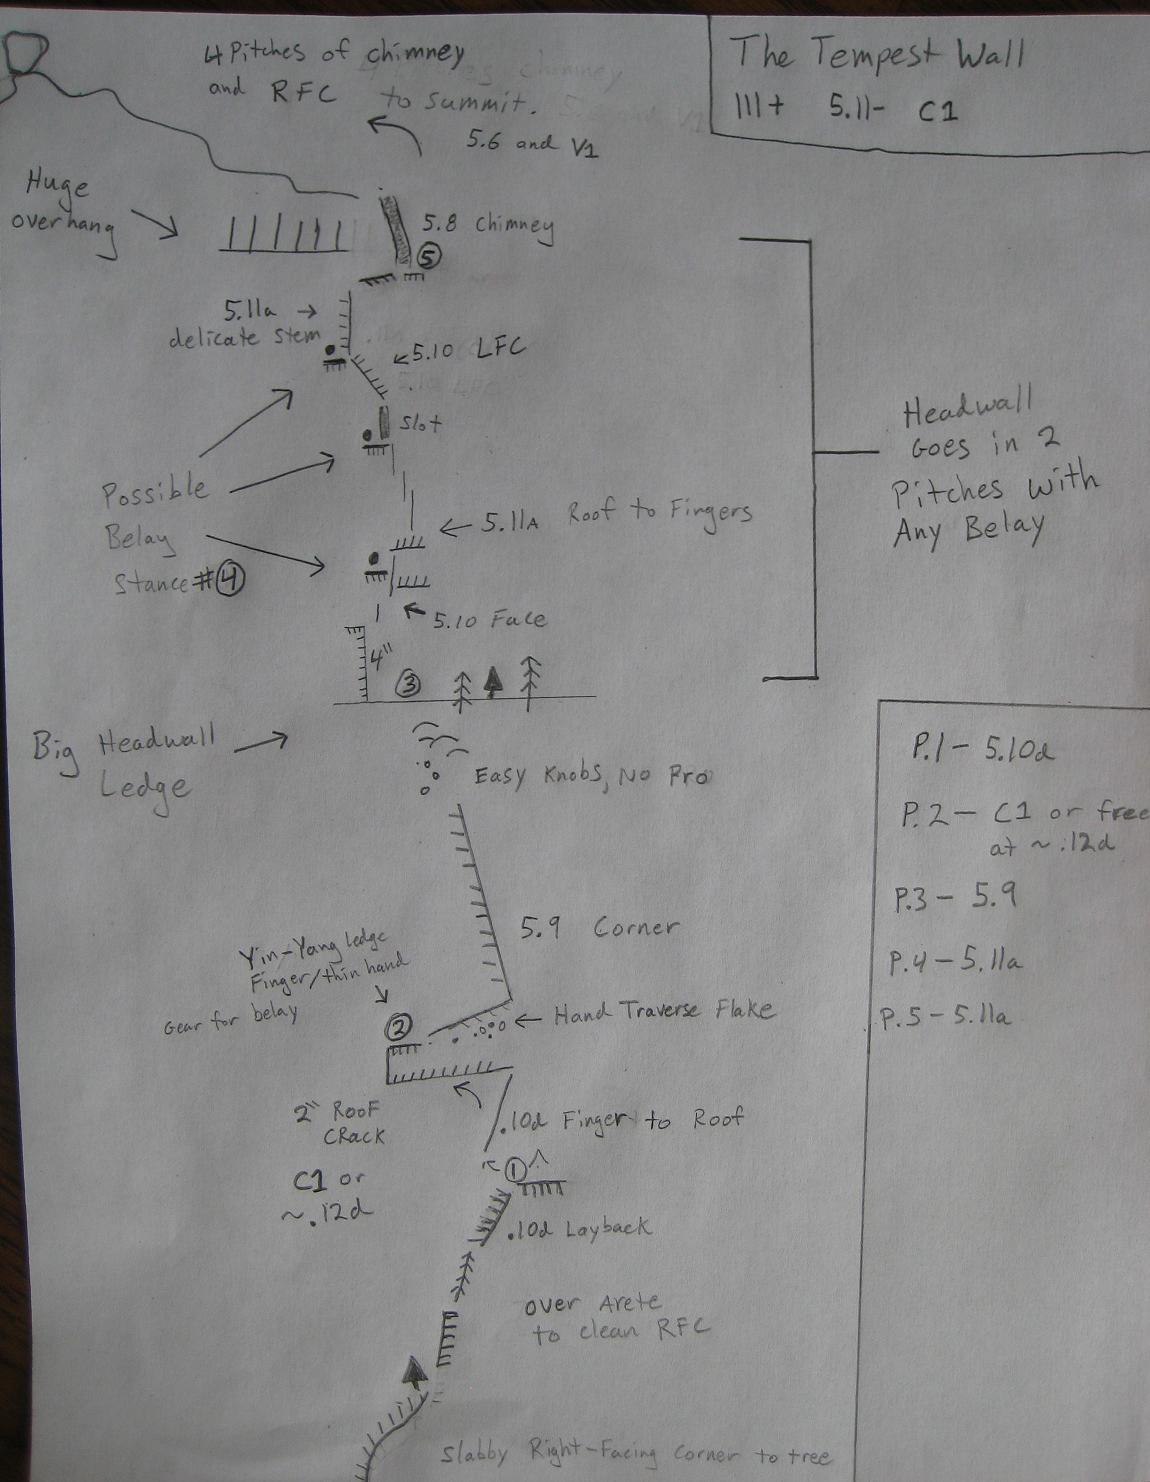 The Tempest Wall
III+ 5.11- C1
4 Pitches of chimney
and RFC to summit.
5.6 and V1
Huge
overhang
5.8 Chimney
5
5.11a
delicate stem
5.10 LFC
Slot
Possible
Belay
Stance #4
5.11A Roof to Fingers
5.10 Face
4"
3
Headwall
Goes in 2
Pitches with
Any Belay
Big Headwall
Ledge
Easy Knobs, No Pro
5.9 Corner
Yin-Yang ledge
Finger/thin hand
Gear for belay
2
Hand Traverse Flake
2" Roof
Crack
C1 or
~.12d
.10d Finger to Roof
1
.10d Layback
over Arete
to clean RFC
Slabby Right-Facing Corner to tree
P.1- 5.10d
P.2- C1 or free
at ~.12d
P.3- 5.9
P.4-5.11a
P.5-5.11a